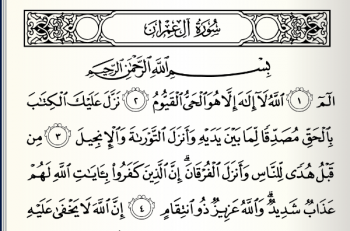 سُورَةُ آلِ عِمۡرَانَ
بِسۡمِ ٱللَّهِ ٱلرَّحۡمَٰنِ ٱلرَّحِيمِ
الٓمٓ ١ ٱللَّهُ لَآ إِلَٰهَ إِلَّا هُوَ ٱلۡحَيُّ ٱلۡقَيُّومُ ٢ نَزَّلَ عَلَيۡكَ ٱلۡكِتَٰبَ
بِٱلۡحَقِّ مُصَدِّقٗا لِّمَا بَيۡنَ يَدَيۡهِ وَأَنزَلَ ٱلتَّوۡرَىٰةَ وَٱلۡإِنجِيلَ ٣ مِن
قَبۡلُ هُدٗى لِّلنَّاسِ وَأَنزَلَ ٱلۡفُرۡقَانَۗ إِنَّ ٱلَّذِينَ كَفَرُواْ بِـَٔايَٰتِ ٱللَّهِ لَهُمۡ
عَذَابٞ شَدِيدٞۗ وَٱللَّهُ عَزِيزٞ ذُو ٱنتِقَامٍ ٤ إِنَّ ٱللَّهَ لَا يَخۡفَىٰ عَلَيۡهِ